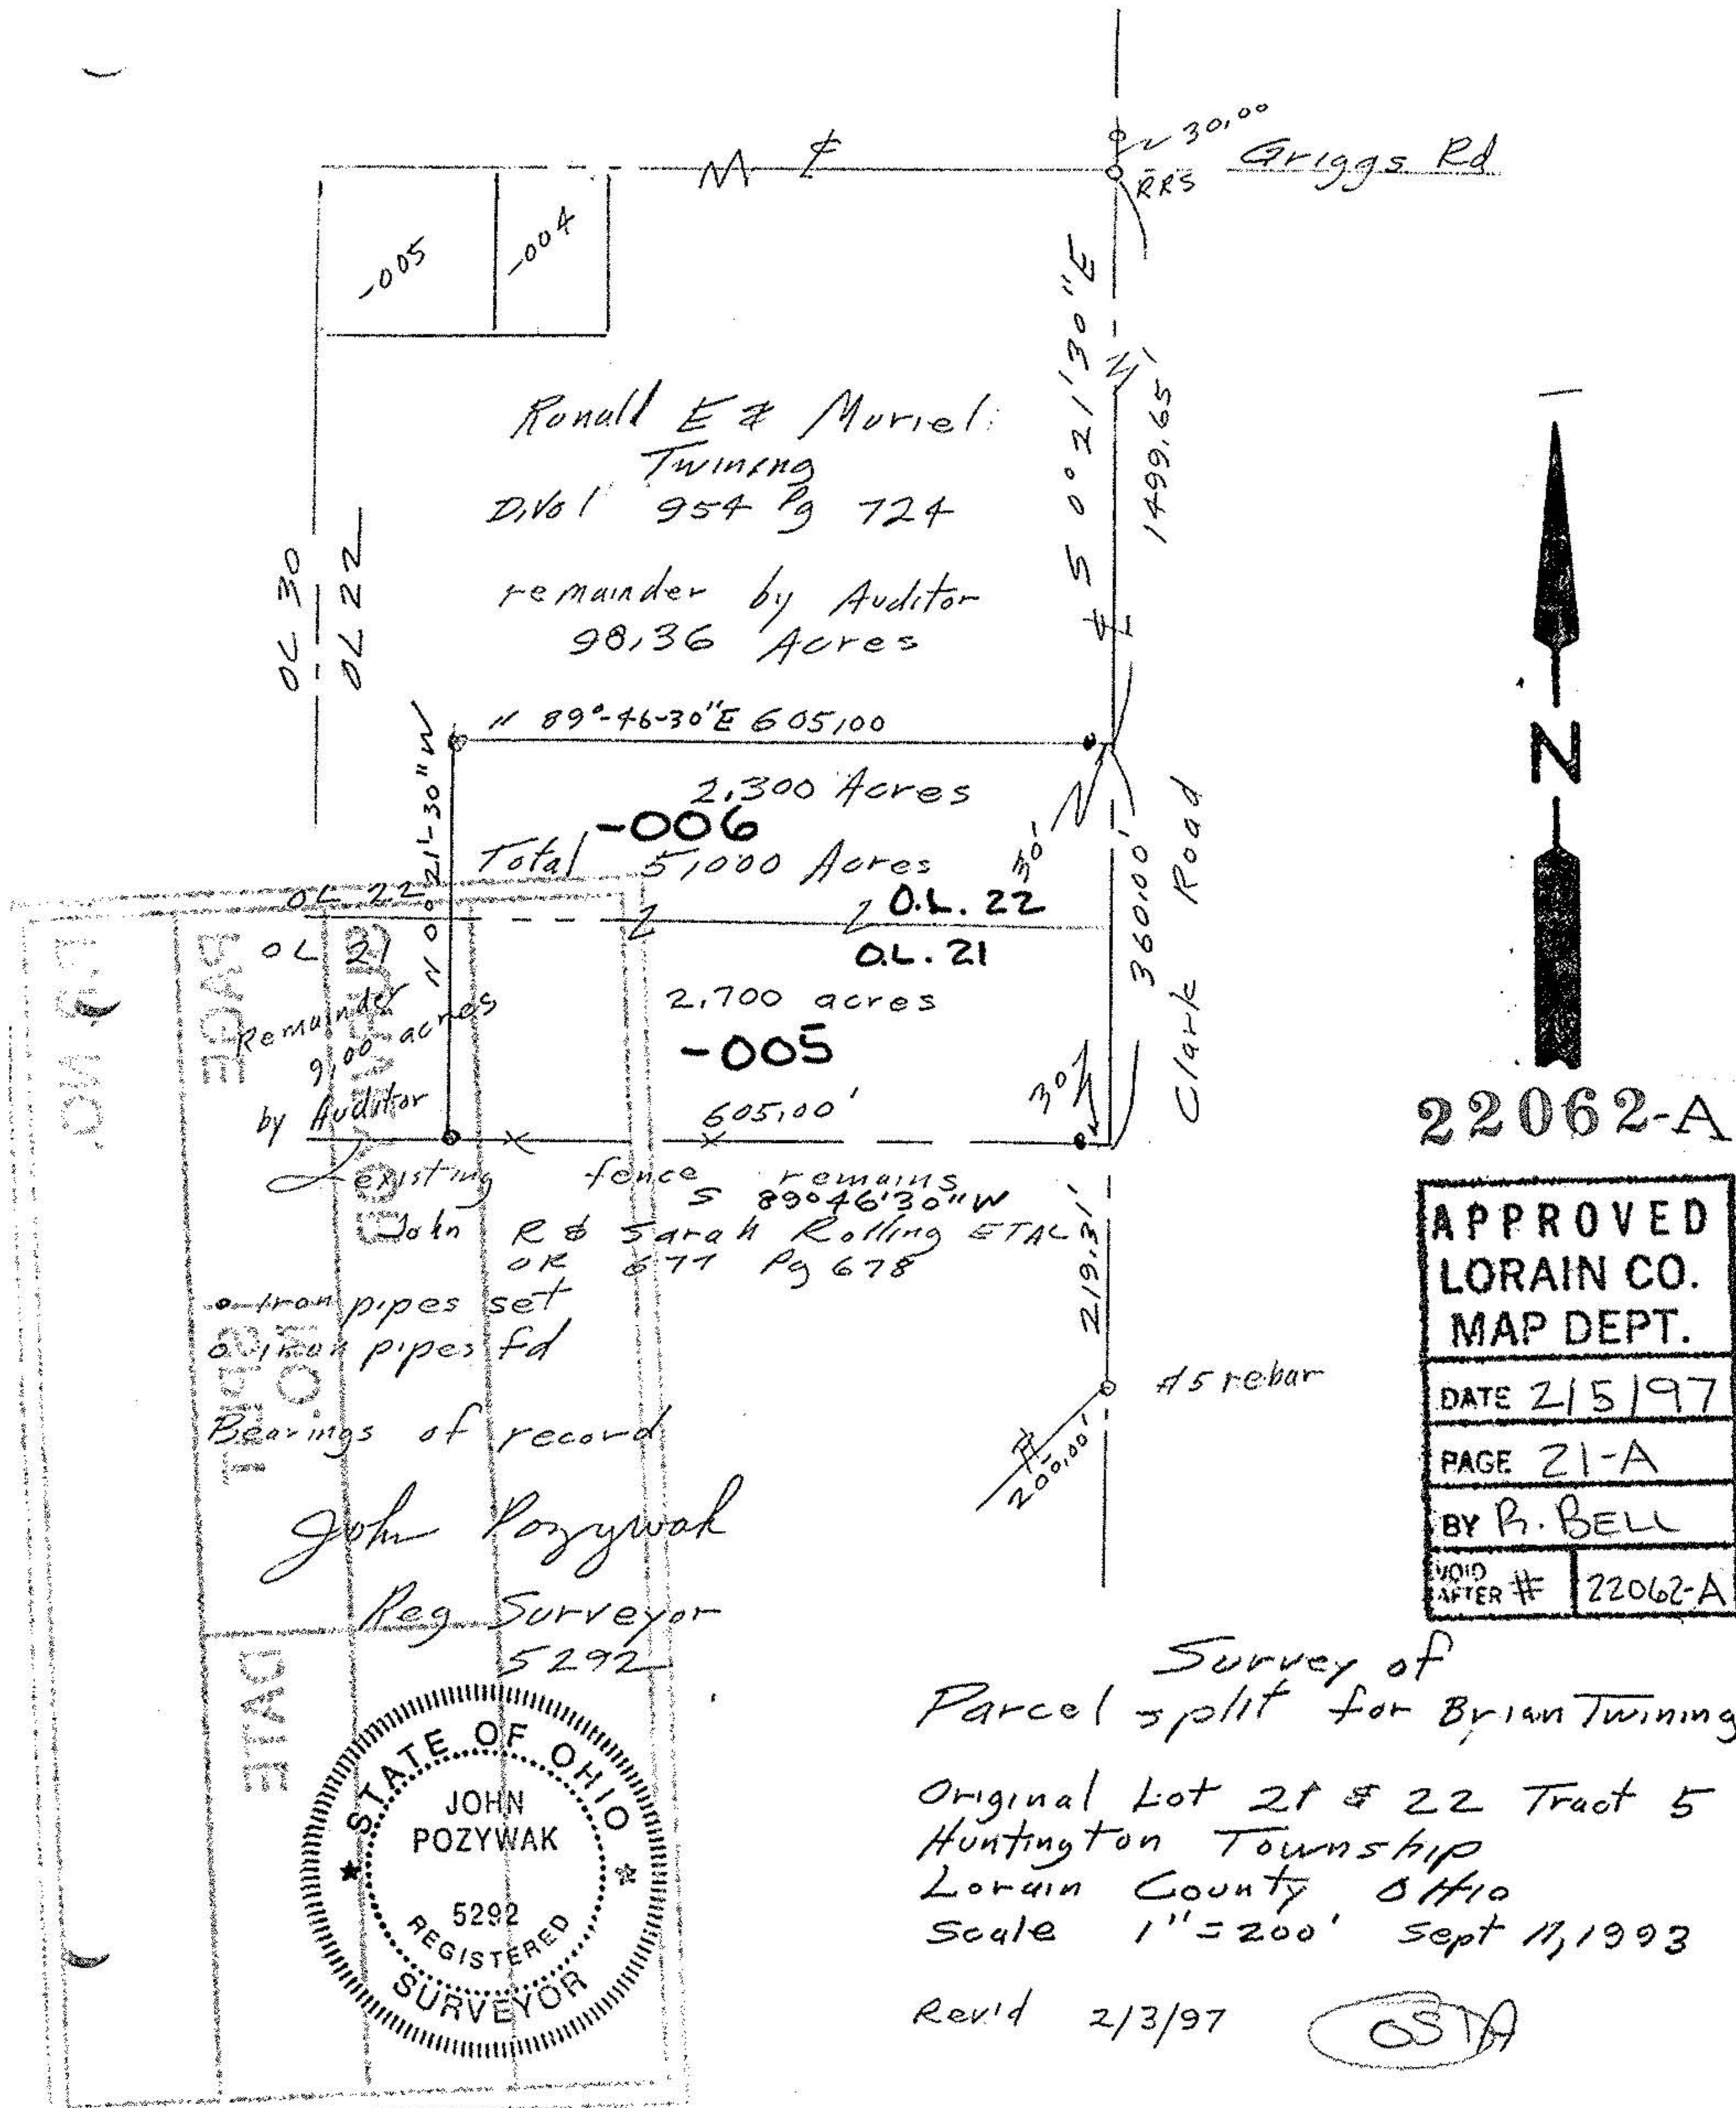 30.00
Griggs Rd
RRS
-005
-004
S 0° 21' 30" E
1499.65'
Ronald E & Muriel
Twining
D.Vol 954 Pg 724
remainder by Auditor
98.36 Acres
OL 30
OL 22
N 89°-46-30"E 605.00
N 0° 21'-30" W
2.300 Acres
-006
Total 5.000 Acres
30'
360.00'
Clark Road
OL 22
O.L. 22
OL 21
O.L. 21
Remainder
9.00 acres
by Auditor
2.700 acres
-005
605.00'
30'
existing fence remains
S 89°46'30"W
John R & Sarah Rolling ETAL
OR 677 Pg 678
219.31'
Iron pipes set
Iron pipes fd
#5 rebar
200.00'
Bearings of record
John Pozywak
Reg Surveyor
5292
STATE OF OHIO
JOHN
POZYWAK
5292
REGISTERED
SURVEYOR
N
22062-A
APPROVED
LORAIN CO.
MAP DEPT.
DATE 2/5/97
PAGE 21-A
BY R. BELL
VOID
AFTER # 22062-A
Survey of
Parcel split for Brian Twining
Original Lot 21 & 22 Tract 5
Huntington Township
Lorain County OHio
Scale 1"=200' Sept 11, 1993
Rev'd 2/3/97
PAGE
DATE